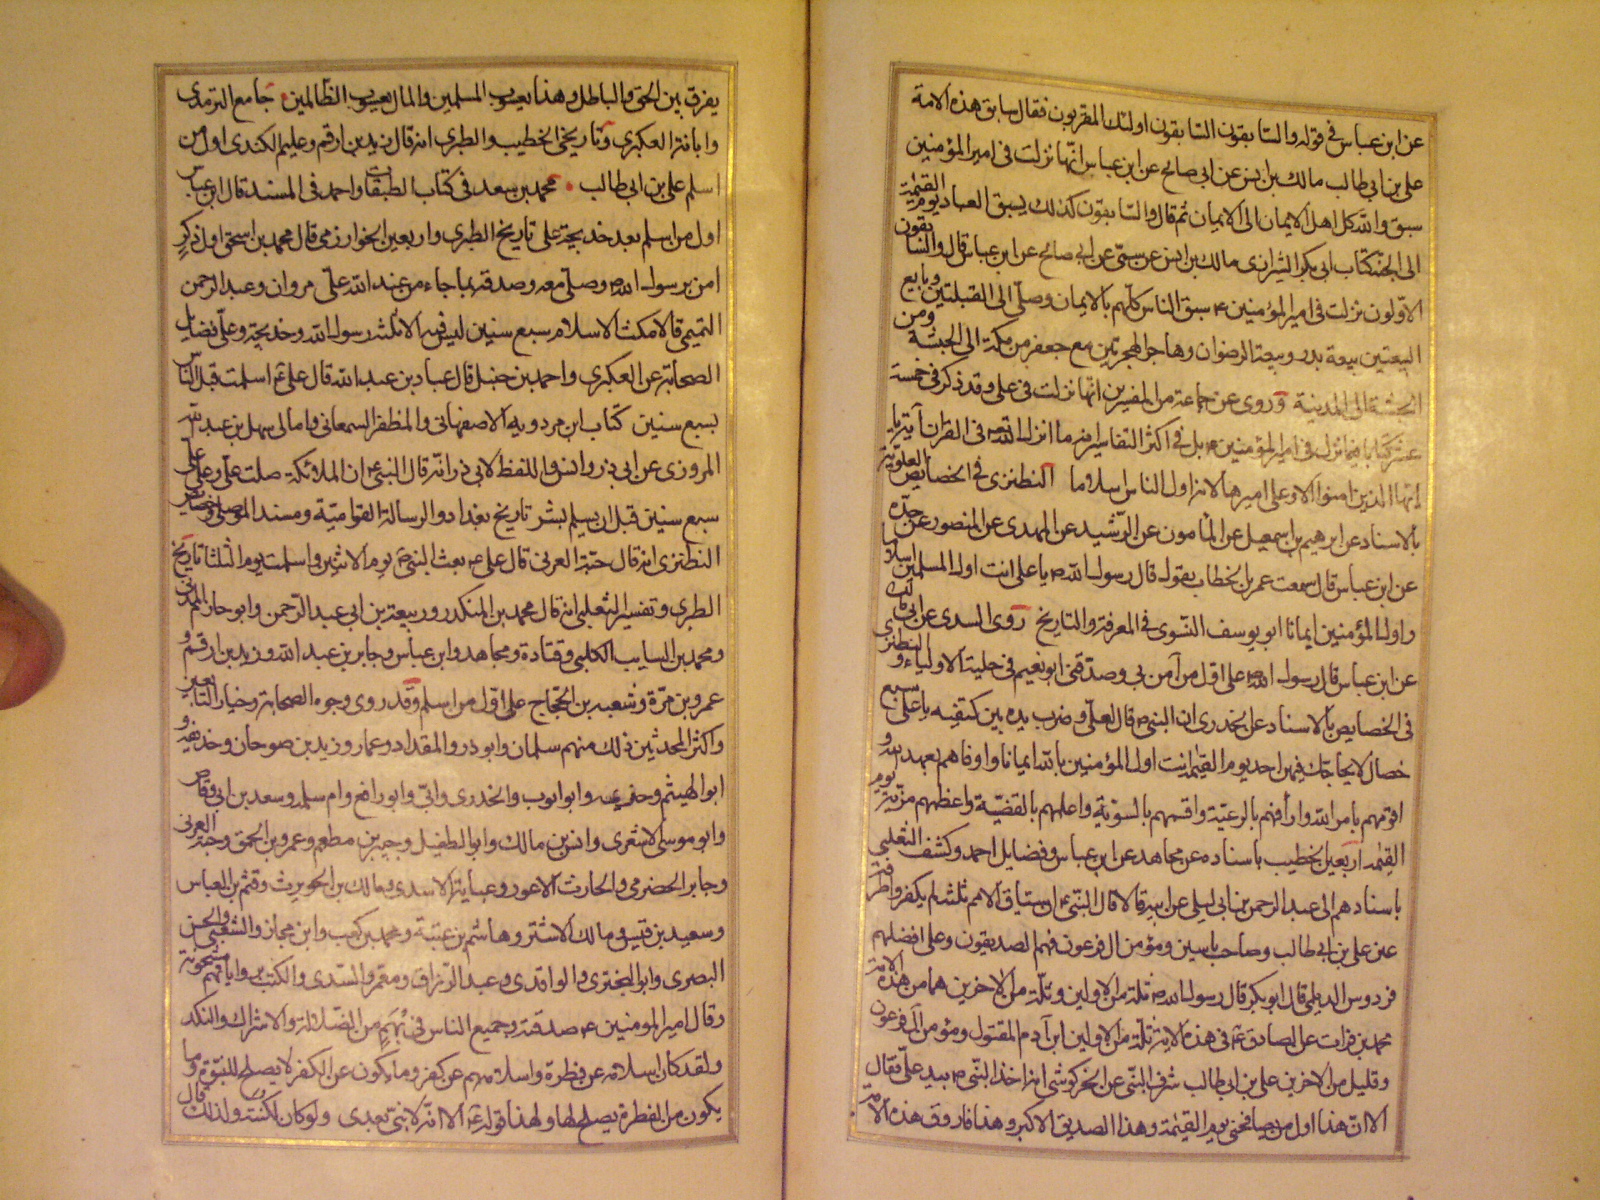 عن ابن عباس في قوله والسابقون السابقون اولئك المقربون فقال سابق هذه الامة
علي بن ابي طالب مالك بن انس عن ابي صالح عن ابن عباس انها نزلت في امير المؤمنين
سبق والله كل اهل الايمان الى الايمان ثم قال والسابقون كذلك يسبق العباد يوم القيمة
الى الجنة كتاب ابي بكر الشيرازى مالك بن انس عن سمي عن ابي صالح عن ابن عباس قال والسابقون
الاولون نزلت في امير المؤمنين ع سبق الناس كلهم بالايمان وصلى الى القبلتين وبايع
البيعتين بيعة بدر وبيعة الرضوان وهاجر الهجرتين مع جعفر من مكة الى الحبشة ومن
الحبشة الى المدينة وروى عن جماعة من المفسرين انها نزلت في علي وقد ذكر في خمسة
عشر كتابا فيما نزل في امير المؤمنين ع بل في اكثر التفاسير انه ما انزل الله في القران آية يا
ايها الذين امنوا الا وعلي اميرها لانه اول الناس اسلاما النطنزى في الخصايص العلوية
بالاسناد عن ابرهيم بن اسمعيل عن المأمون عن الرشيد عن المهدى عن المنصور عن جده
عن ابن عباس قال سمعت عمر بن الخطاب يقول قال رسول الله ص يا علي انت اول المسلمين اسلاما
واول المؤمنين ايمانا ابو يوسف النسوى في المعرفة والتاريخ روى السدى عن ابي مالك
عن ابن عباس قال رسول الله ص علي اول من آمن بي وصدقني ابو نعيم في حلية الاولياء و النطنزى
في الخصايص بالاسناد عن الخدرى ان النبي ص قال لعلي وضرب يده بين كتفيه يا علي سبع
خصال لا يحاجك فيهن احد يوم القيمة انت اول المؤمنين بالله ايمانا واوفاهم بعهد الله و
اقومهم بامر الله وارأفهم بالرعية واقسمهم بالسوية واعلمهم بالقضية واعظمهم مزية يوم
القيمة اربعين الخطيب باسناده عن مجاهد عن ابن عباس وفضايل احمد وكشف الثعلبي
باسنادهم الى عبد الرحمن بن ابي ليلى عن ابيه قالا قال النبي ع ان سباق الامم ثلثة لم يكفروا طرفة
عين علي بن ابي طالب وصاحب ياسين ومؤمن ال فرعون فهم الصديقون وعلي افضلهم
فردوس الديلمي قال ابو بكر قال رسول الله ص ثلة من الاولين وثلة من الاخرين هما من هذه الامة
محمد بن فرات عن الصادق ع في هذه الآية ثلة من الاولين ابن آدم المقتول ومؤمن آل فرعون
وقليل من الاخرين علي بن ابي طالب شرف النبي عن الخركوشي انه اخذ النبي ص بيد علي فقال
الا ان هذا اول من يصافحني يوم القيمة وهذا الصديق الاكبر وهذا فاروق هذه الامة
يفرق بين الحق والباطل وهذا يعسوب المسلمين والمال يعسوب الظالمين جامع الترمذى
وابانة العكبرى وتاريخي الخطيب والطبرى انه قال زيد بن ارقم وعليم الكندى اول من
اسلم علي بن ابي طالب محمد بن سعد في كتاب الطبقات واحمد في المسند قال ابن عباس
اول من اسلم بعد خديجة علي تاريخ الطبرى واربعين الخوارزمي قال محمد بن اسحق اول ذكر
امن برسول الله ص وصلى معه وصدقه بما جاء من عند الله علي مروان وعبد الرحمن
التميمي قالا مكث الاسلام سبع سنين ليس فيه الا ثلثة رسول الله وخديجة وعلي فضايل
الصحابة عن العكبرى واحمد بن حنبل قال عباد بن عبد الله قال علي ع اسلمت قبل الناس
بسبع سنين كتاب ابن مردويه الاصفهاني والمظفر السمعاني وامالي سهل بن عبد الله
المروزى عن ابي ذر وانس واللفظ لابي ذر انه قال النبي ع ان الملائكة صلت علي وعلى علي
سبع سنين قبل ان يسلم بشر تاريخ بغداد والرسالة القوامية ومسند الموصلي وخصايص
النطنزى انه قال حبة العرني قال علي ع بعث النبي ع يوم الاثنين واسلمت يوم الثلثا تاريخ
الطبرى وتفسير الثعلبي انه قال محمد بن المنكدر وربيعة بن ابي عبد الرحمن وابو حازم المدني
ومحمد بن السايب الكلبي وقتادة ومجاهد وابن عباس وجابر بن عبد الله وزيد بن ارقم و
عمرو بن مرة وشعبة بن الحجاج علي اول من اسلم وقد روى وجوه الصحابة وخيار التابعين
واكثر المحدثين ذلك منهم سلمان وابو ذر والمقداد وعمار وزيد بن صوحان وحذيفة و
ابو الهيثم وخزيمه وابو ايوب والخدرى وابي وابو رافع وام سلمه وسعد بن ابي وقاص
وابو موسى الاشعرى وانس بن مالك وابو الطفيل وجبير بن مطعم وعمرو بن الحمق وحبة العرني
وجابر الحضرمي والحارث الاعور وعباية الاسدى ومالك بن الحويرث وقثم بن العباس
وسعيد بن قيس ومالك الاشتر وهاشم بن عتبة ومحمد بن كعب وابن مجاز والشعبي والحسن
البصرى وابو البخترى والواقدى وعبد الرزاق ومعمر والسدى والكتب برواياتهم مشحونة
وقال امير المومنين ع صدقته وجميع الناس في بهم من الضلالة والاشراك والنكد
ولقد كان اسلامه عن فطرة واسلامهم عن كفر وما يكون عن الكفر لا يصلح للنبوة وما
يكون من الفطرة يصلح لها ولهذا قوله ع الا انه لا نبي بعدى ولو كان لكنته ولذلك قال